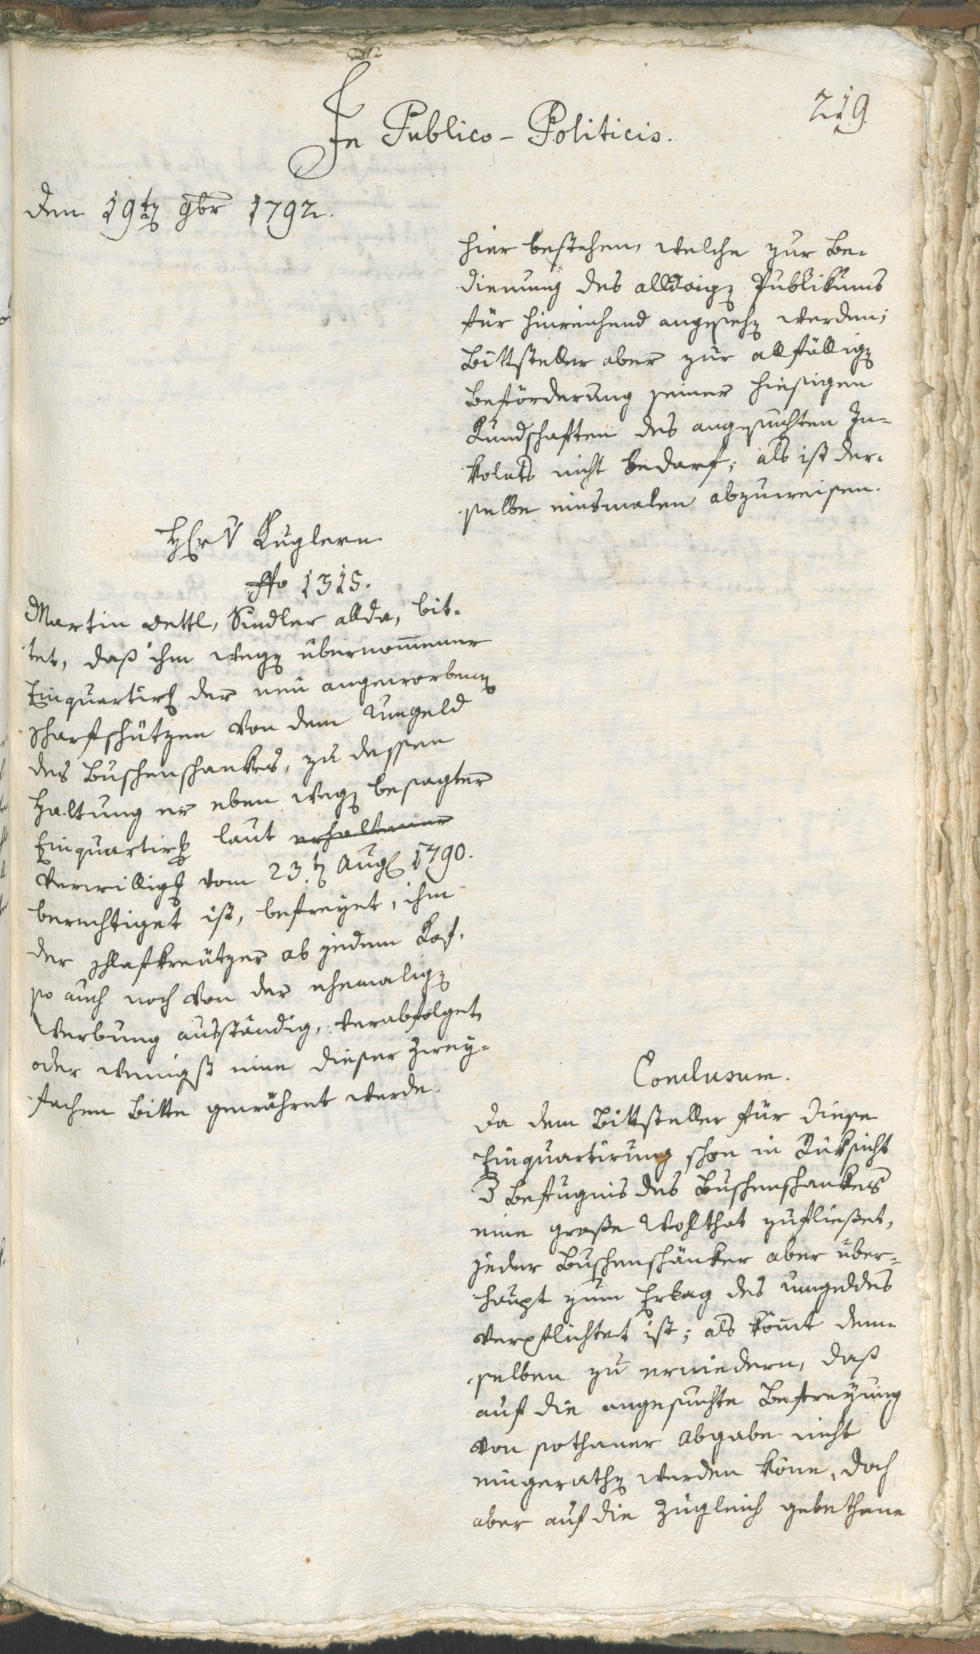 In Publico-Politicis.
219.
Den 19ten 9br 1792.
hier bestehen, welche zur Be-
dienung des alldoigen Publikums
für hinreichend angesehen werden;
Bittsteller aber zur allfälligen
Beförderung seiner hiesigen
Kundschaften des angesuchten In-
kolats nicht bedarf; als ist der-
selbe einsmalen abzuweisen.
Herr v Kuglern
No 1315.
Martin Oettl, Sindler allda, bit-
tet, daß ihm wegen übernommener
Einquartirung der neu angeworbenen
Scharfschützen von dem Umgeld
des Buschenschankes, zu dessen
Haltung er eben wegen besagter
Einquartirung laut erhaltener
Verwilligung vom 23ten Aug 1790.
berechtiget ist, befreyet, ihm
der Schlafkreützer ab jedem Kopf,
so auch noch von der ehemaligen
Werbung ausständig, verabfolget,
oder wenigst eine dieser zwey-
fachen Bitte gewähret werde.
Conclusum.
Da dem Bittsteller für diese
Einquartirung schon in Rüksicht
d Befugnis des Buschenschankes
eine große Wohlthat zufließet,
jeder Buschenschänker aber über-
haupt zum Erlag des Umgeldes
verpflichtet ist; als kömt dem-
selben zu erwiedern, daß
auf die angesuchte Befreyung
von sothaner Abgabe nicht
eingerathen werden köne, doch
aber auf die zugleich gebethene